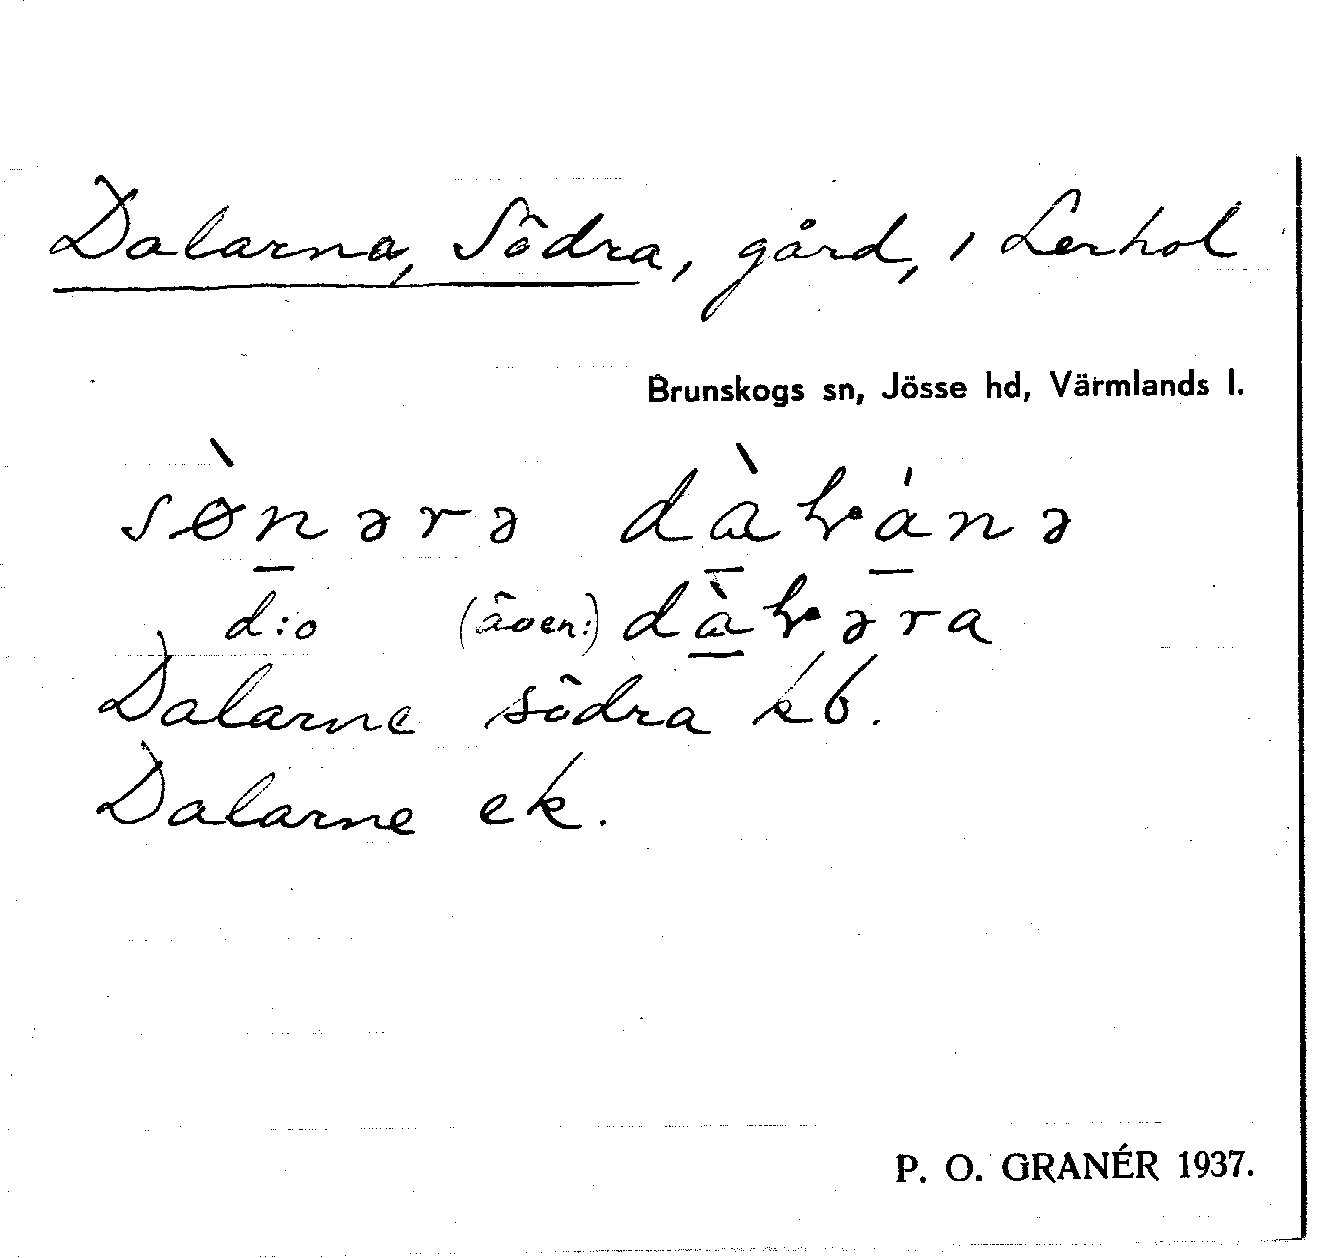 Dalarna, Södra, gård, i Lerhol
Brunskogs sn, Jösse hd, Värmlands l.
sø̀nərə dàɽánə
d:o (även:) dàɽəra
Dalarne södra kb.
Dalarne ek.
P. O. GRANÉR 1937.